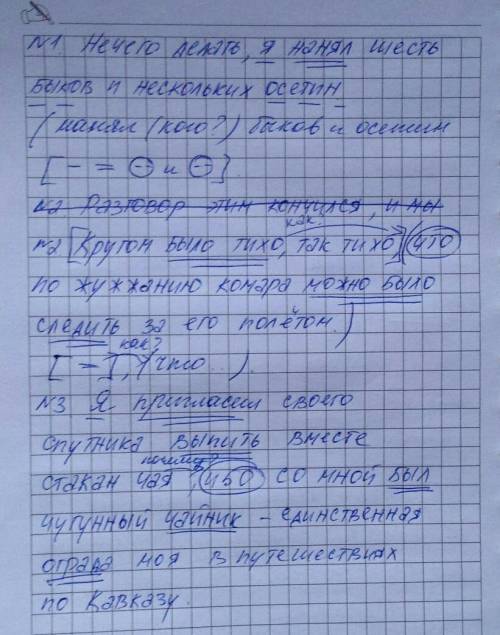 №1. Нечего делать, я нанял шесть
быков и нескольких осетин
(нанял (кого?) быков и осетин
[– = ⊖ и ⊖].
№2 Разговор этим кончился, и мы
как?
№2 [Кругом было тихо, так тихо], (что
по жужжанию комара можно было
следить за его полётом.)
как?
[ = ], (что ...).
№3 Я пригласил своего
спутника выпить вместе
почему?
стакан чая, ибо со мной был
чугунный чайник – единственная
отрада моя в путешествиях
по Кавказу.